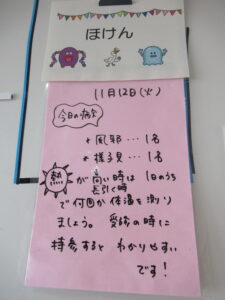 ほけん
11月12日(火)
今日の病欠
＊風邪…1名
＊様子見…1名
熱が高い時は 1日のうち
長引く時
で何回か体温を測り
ましょう。受診の時に
持参すると わかりやすい
です!